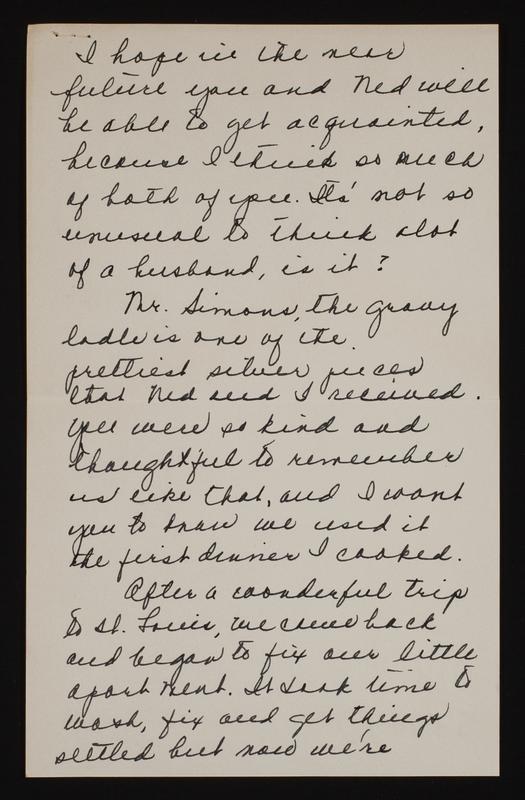 I hope in the near
future you and Ned will
be able to get acquainted,
because I think so much
of both of you. Its' not so
unusual to think alot
of a husband, is it?
Mr. Simons, the gravy
ladle is one of the
prettiest silver pieces
that Ned and I received.
You were so kind and
thoughtful to remember
us like that, and I want
you to know we used it
the first dinner I cooked.
After a woonderful trip
to St. Louis, we came back
and began to fix our little
apartment. It took time to
wash, fix and get things
settled but now we're